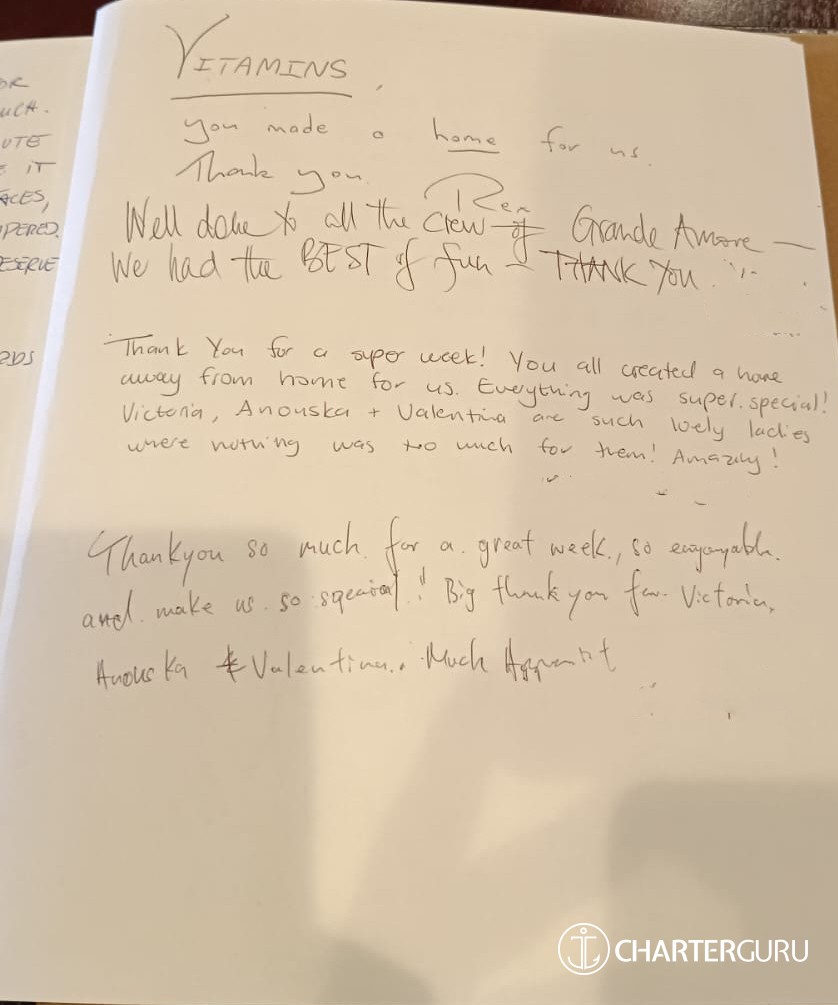 OR
UCA.
UTE
E IT
ACES,
PERED.
ESERVE
RDS
VITAMINS
you made a home for us.
Thank you.
Well done to all the crew of Grande Amore —
We had the BEST of fun – THANK YOU
Thank You for a super week! You all created a home
away from home for us. Everything was super special!
Victoria, Anouska + Valentina are such lovely ladies
where nothing was too much for them! Amazing!
Thankyou so much for a great week, so enjoyable.
and make us so special! Big thank you for Victoria,
Anouska & Valentina. Much
CHARTERGURU